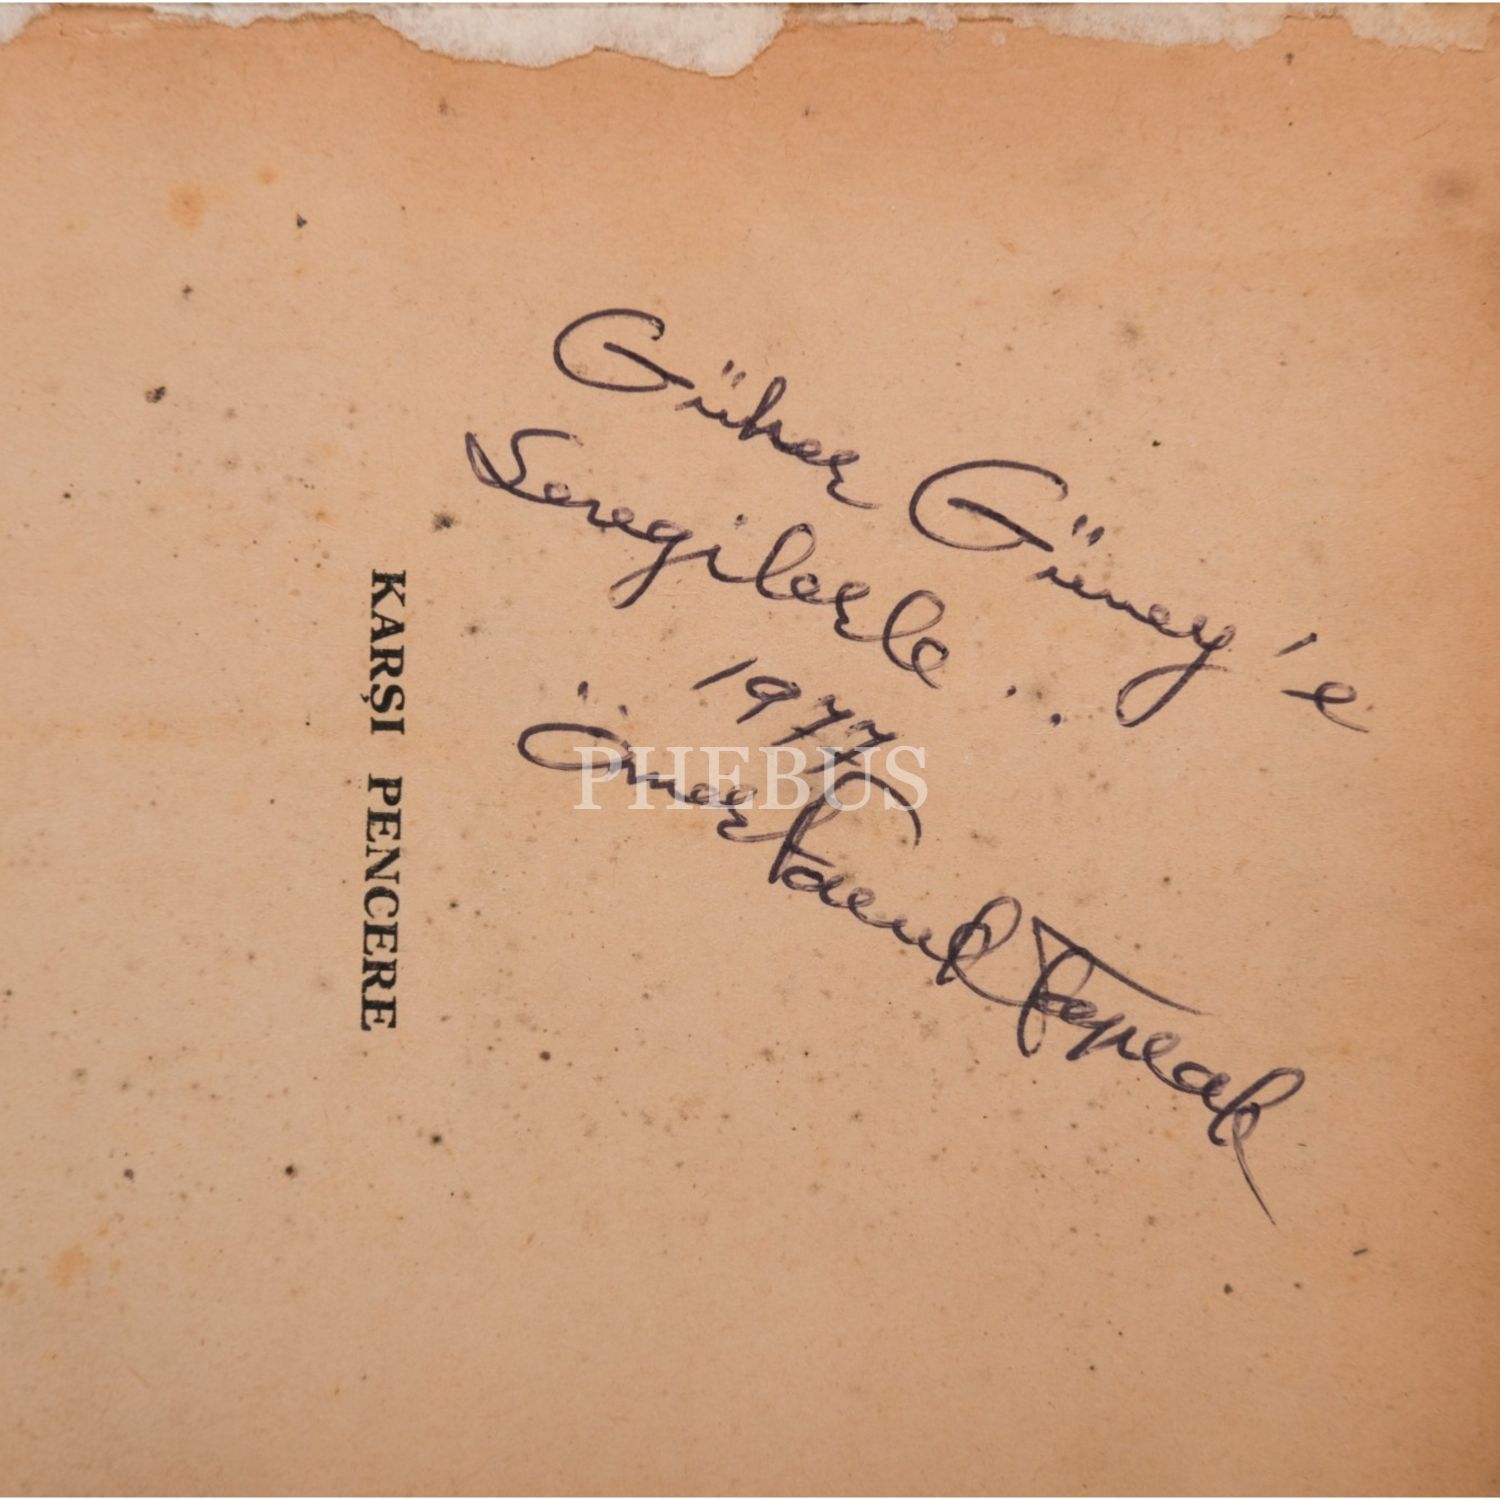 Güher Güney'e
Sevgilerle..
1977
Ömer Faruk Toprak
KARŞI PENCERE
PHEBUS